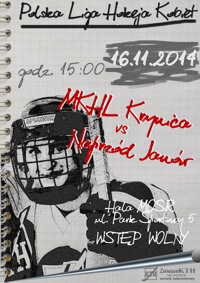 Polska Liga Hokeja Kobiet
16.11.2014
godz. 15:00
MKHL Krynica
vs
Naprzód Janów
Hala MOSiR
ul. Park Sportowy 5
WSTĘP WOLNY
ZawszeKTH